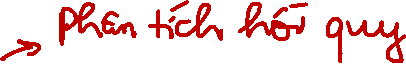 → phân tích hồi quy